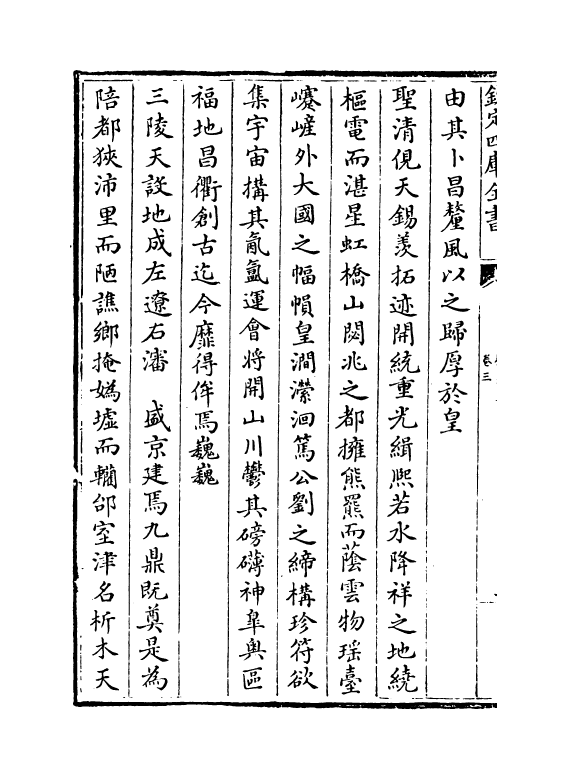 欽定四庫全書
卷三
由其卜昌釐風以之歸厚於皇
聖清俔天錫羨拓迹開統重光緝熙若水降祥之地繞
樞電而湛星虹橋山閟兆之都擁熊羆而蔭雲物瑶臺
㠍嵼外大國之幅幀皇澗瀠洄篤公劉之締構珍符欲
集宇宙搆其氤氲運會將開山川鬱其磅礴神臯奥區
福地昌衢創古迄今靡得侔焉巍巍
三陵天設地成左遼右瀋　盛京建焉九鼎既奠是為
陪都狹沛里而陋譙鄉掩嬀墟而轥邰室津名析木天